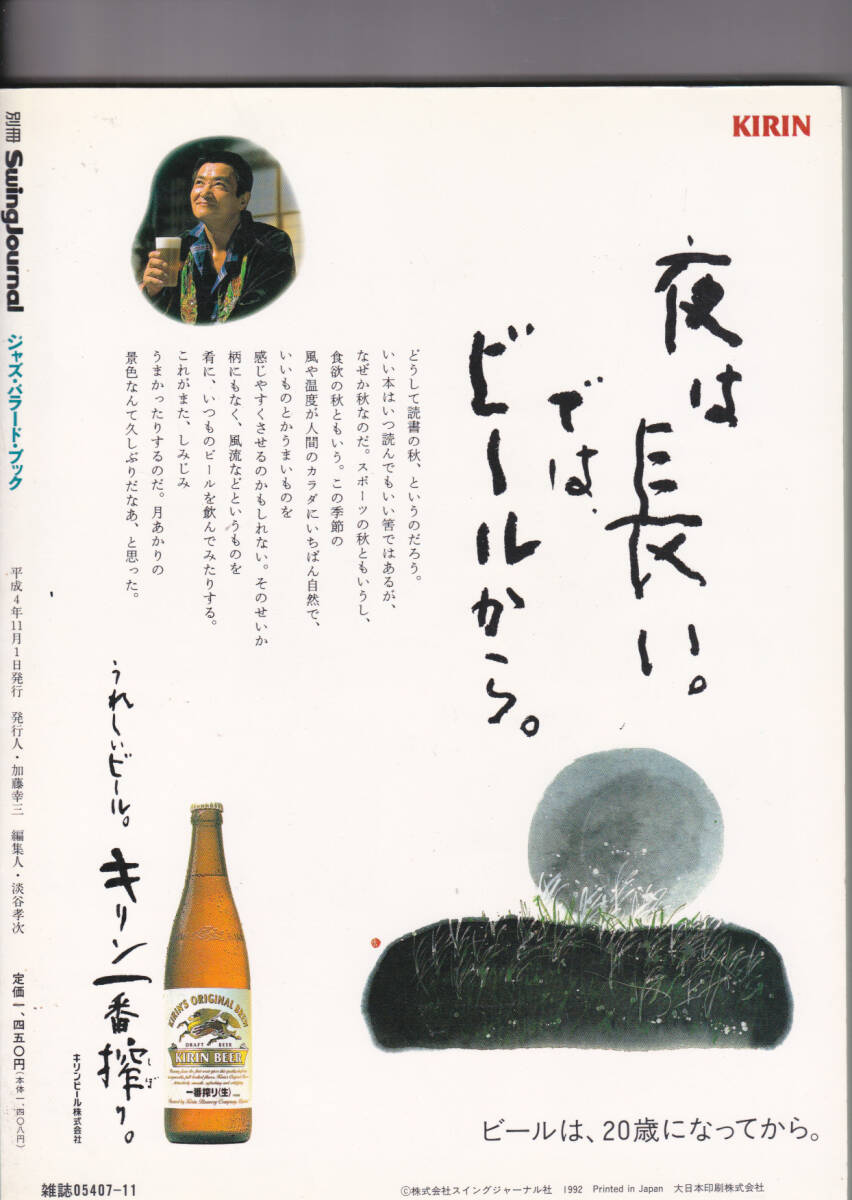 KIRIN
夜は
長い。
では、
ビールから。
どうして読書の秋、というのだろう。
いい本はいつ読んでもいい筈ではあるが、
なぜか秋なのだ。スポーツの秋ともいうし、
食欲の秋ともいう。この季節の
風や温度が人間のカラダにいちばん自然で、
いいものとかうまいものを
感じやすくさせるのかもしれない。そのせいか
柄にもなく、風流などというものを
肴に、いつものビールを飲んでみたりする。
これがまた、しみじみ
うまかったりするのだ。月あかりの
景色なんて久しぶりだなあ、と思った。
うれしいビール。
キリン一番搾り。
しぼ
キリンビール株式会社
KIRIN'S ORIGINAL BREW
DRAFT BEER
KIRIN BEER
一番搾り〈生〉
ビールは、20歳になってから。
別冊 Swing Journal ジャズ・バラード・ブック 平成4年11月1日発行 発行人・加藤幸三 編集人・淡谷孝次 定価一、四五〇円(本体一、四〇八円)
雑誌05407-11
©株式会社スイングジャーナル社 1992 Printed in Japan 大日本印刷株式会社